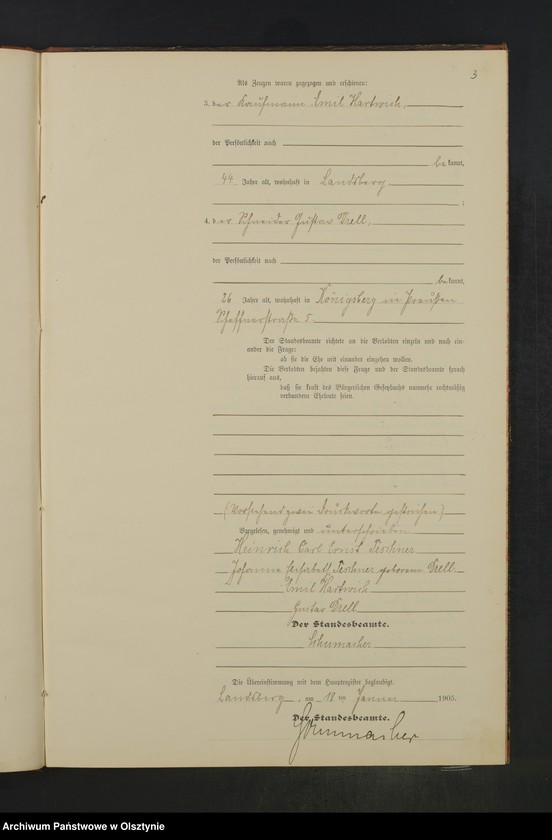 3
Als Zeugen waren zugezogen und erschienen:
3. der Kaufmann Emil Hartwich,
der Persönlichkeit nach
bekannt,
44 Jahre alt, wohnhaft in Landsberg
;
4. der Schneider Gustav Drell,
der Persönlichkeit nach
bekannt,
26 Jahre alt, wohnhaft in Königsberg in Preußen
Scheffnerstraße 5.
Der Standesbeamte richtete an die Verlobten einzeln und nach ein-
ander die Frage:
ob sie die Ehe mit einander eingehen wollen.
Die Verlobten bejahten diese Frage und der Standesbeamte sprach
hierauf aus,
daß sie kraft des Bürgerlichen Gesetzbuchs nunmehr rechtmäßig
verbundene Eheleute seien.
(Vorstehend zwei Druckworte gestrichen)
Vorgelesen, genehmigt und unterschrieben
Heinrich Carl Ernst Teschner
Johanna Elisabeth Teschner geborene Drell.
Emil Hartwich
Gustav Drell
Der Standesbeamte.
Schumacher
Die Übereinstimmung mit dem Hauptregister beglaubigt.
Landsberg, am 18 ten Januar 1905.
Der Standesbeamte.
Schumacher
Archiwum Państwowe w Olsztynie